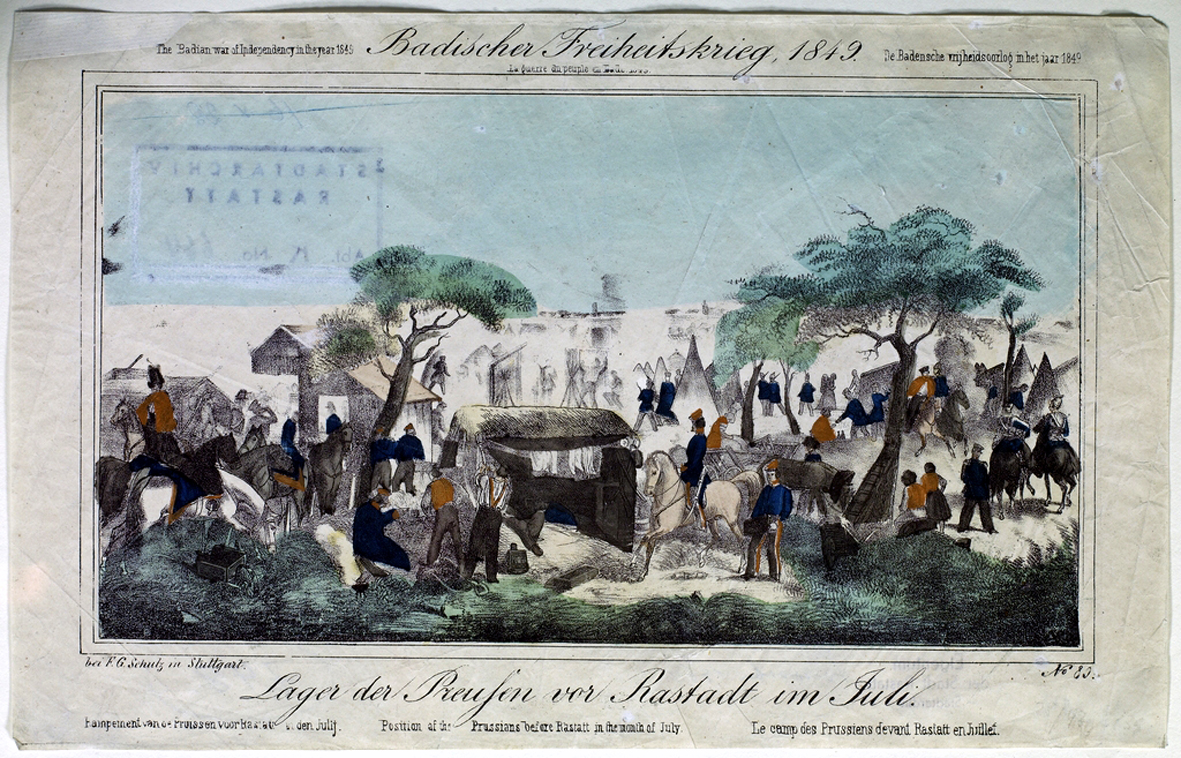 The Badian war of Independency in the year 1849
Badischer Freiheitskrieg, 1849.
De Badensche vrijheidsoorlog in het jaar 1849
La guerre du peuple en
STADTARCHIV
RASTATT
Abt. No.
bei F. G. Schulz in Stuttgart.
No 
Lager der Preußen vor Rastadt im Juli.
Kampement van de Pruissen voor Rastatt den Julij.
Position of the Prussians before Rastatt in the month of July.
Le camp des Prussiens devant Rastatt en Juillet.